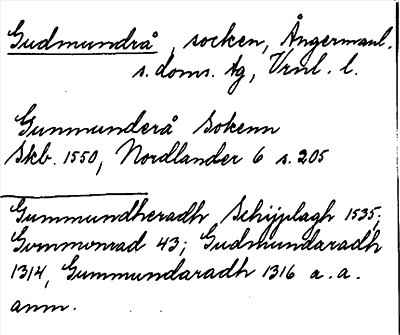 Gudmundrå, socken, Ångermanl.
s. doms. tg, Vrnl. l.
Gunmunderå Sokenn
Skb. 1550, Nordlander 6 s. 205
Gummundheradh Schijplagh 1535;
Gommonrad 43; Gudmundaradh
1314, Gummundaradh 1316 a. a.
anm.